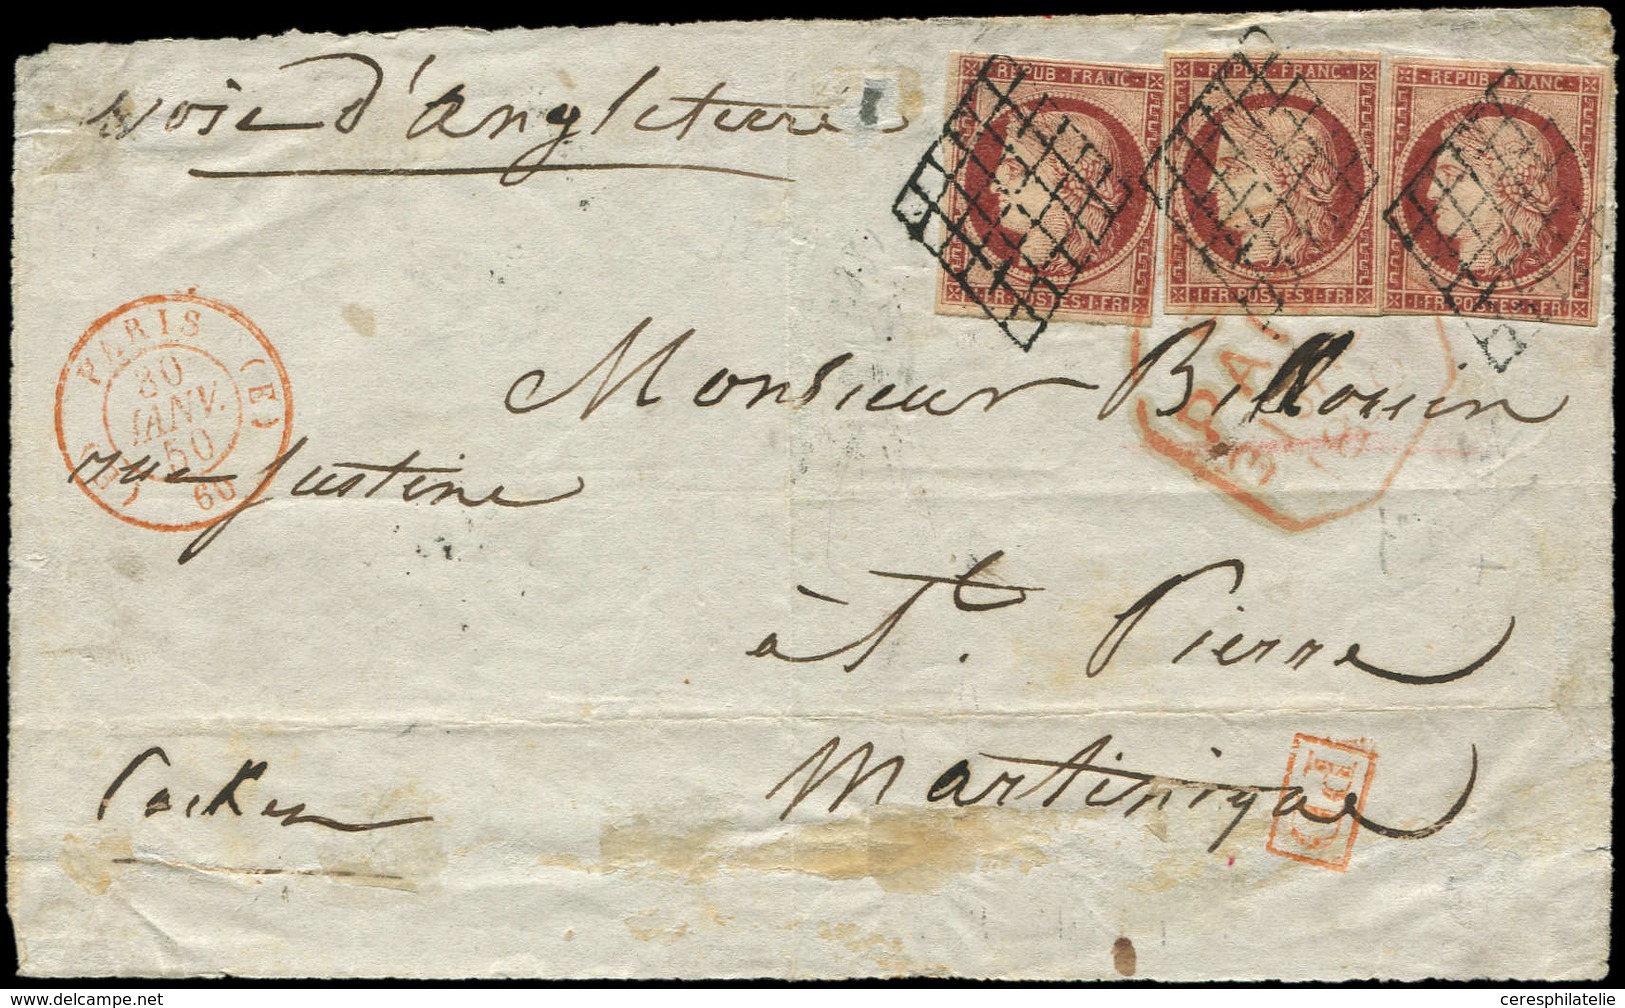 voie d'Angleterre
REPUB·FRANC·
1·FR·POSTES·1·FR
REPUB·FRANC·
1·FR·POSTES·1·FR
REPUB·FRANC·
1·FR·POSTES·1·FR
PARIS (E)
30
JANV.
50
60
PAI
Monsieur Billouin
rue Justine
à St. Pierre
Martinique
PD
Packet
© www.delcampe.net
ceresphilatelie